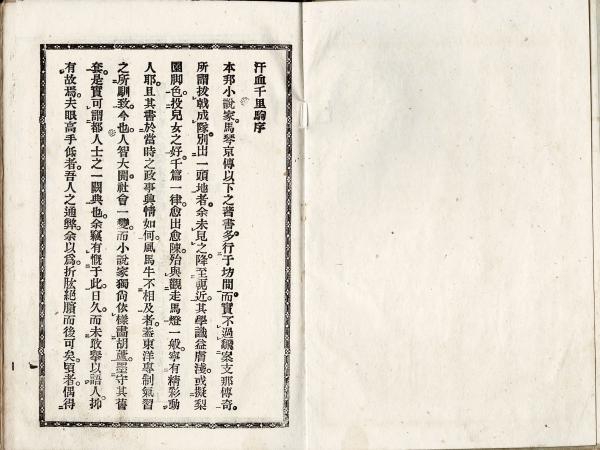 汗血千里駒序
本邦小說家馬琴京傳以下之著書多行于坊間而實不過飜案支那傳奇
所謂拔戟成隊別出一頭地者余未見之降至輓近其學識益膚淺或擬梨
園脚色投兒女之好千篇一律愈出愈陳殆與觀走馬燈一般寧有精彩動
人耶且其書於當時之政事輿情如何風馬牛不相及者蓋東洋專制氣習
之所馴致今也人智大開社會一變而小說家獨尙依樣畫胡蘆墨守其舊
套是實可謂都人士之一闕典也余竊有慨于此日久而未敢擧以語人抑
有故焉夫眼高手低者吾人之通弊余以爲折肱絕臏而後可矣頃者偶得